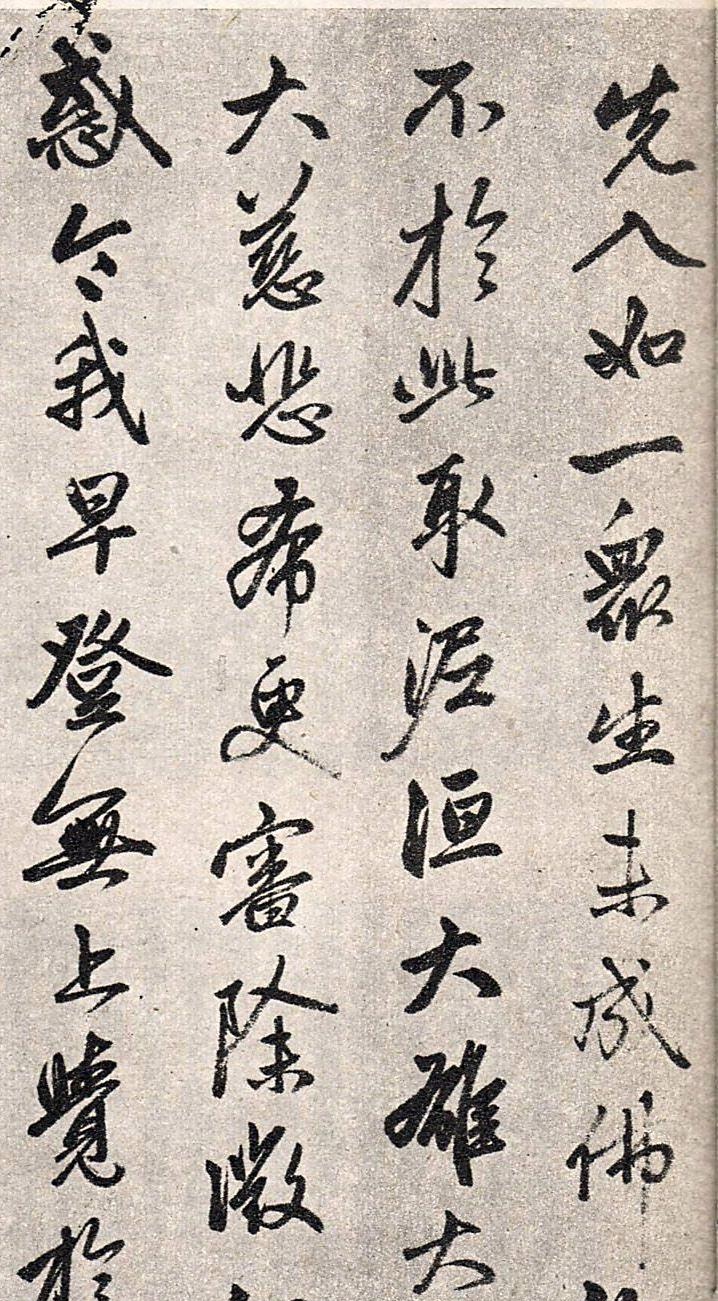 先入如一眾生未成佛
不於此取泥洹大雄大
大慈悲希更審除微
惑令我早登無上覺於